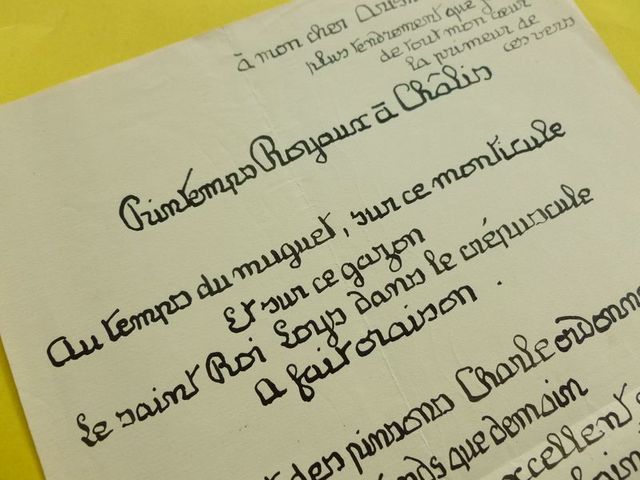 à mon cher
plus tendrement que j
de tout mon cœur
la primeur de
ces vers
Printemps Royaux à Châlis
Au temps du muguet, sur ce monticule
Et sur ce gazon
Le saint Roi Loys dans le crépuscule
A fait oraison.
des pinsons Charle ordonne
que demain